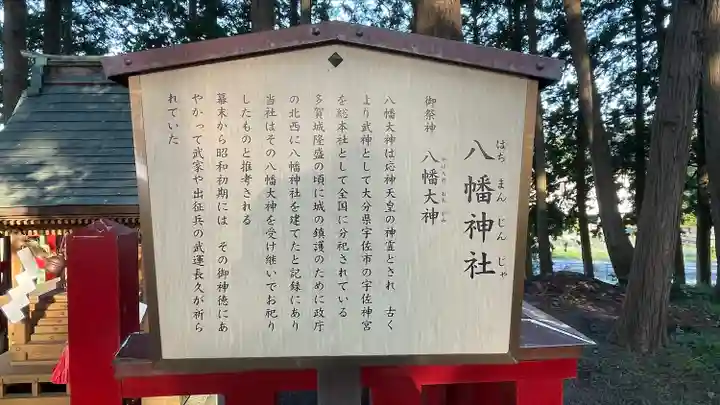 八幡神社
はちまんじんじゃ
御祭神　八幡大神
八幡大神は応神天皇の神霊とされ　古く
より武神として大分県宇佐市の宇佐神宮
を総本社として全国に分祀されている
多賀城隆盛の頃に城の鎮護のために政庁
の北西に八幡神社を建てたと記録にあり
当社はその八幡大神を受け継いでお祀り
したものと推考される
幕末から昭和初期には　その御神徳にあ
やかって武家や出征兵の武運長久が祈ら
れていた